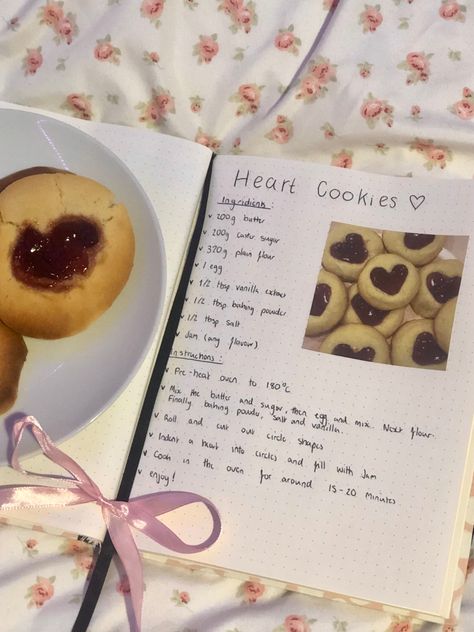 Heart Cookies ♡
Ingridients :
v 200g butter
v 200g caster sugar
v 320g plain flour
v 1 egg
v 1/2 tbsp vanilla extract
v 1/2 tbsp baking powder
v 1/2 tbsp salt
v Jam (any flavour)
Instructions :
v Pre-heat oven to 180°C
v Mix the butter and sugar, then egg and mix. Next flour.
Finally baking powder, salt and vanilla.
v Roll and cut out circle shapes
v Indent a heart into circles and fill with Jam
v Cook in the oven for around 15-20 minutes
v enjoy!